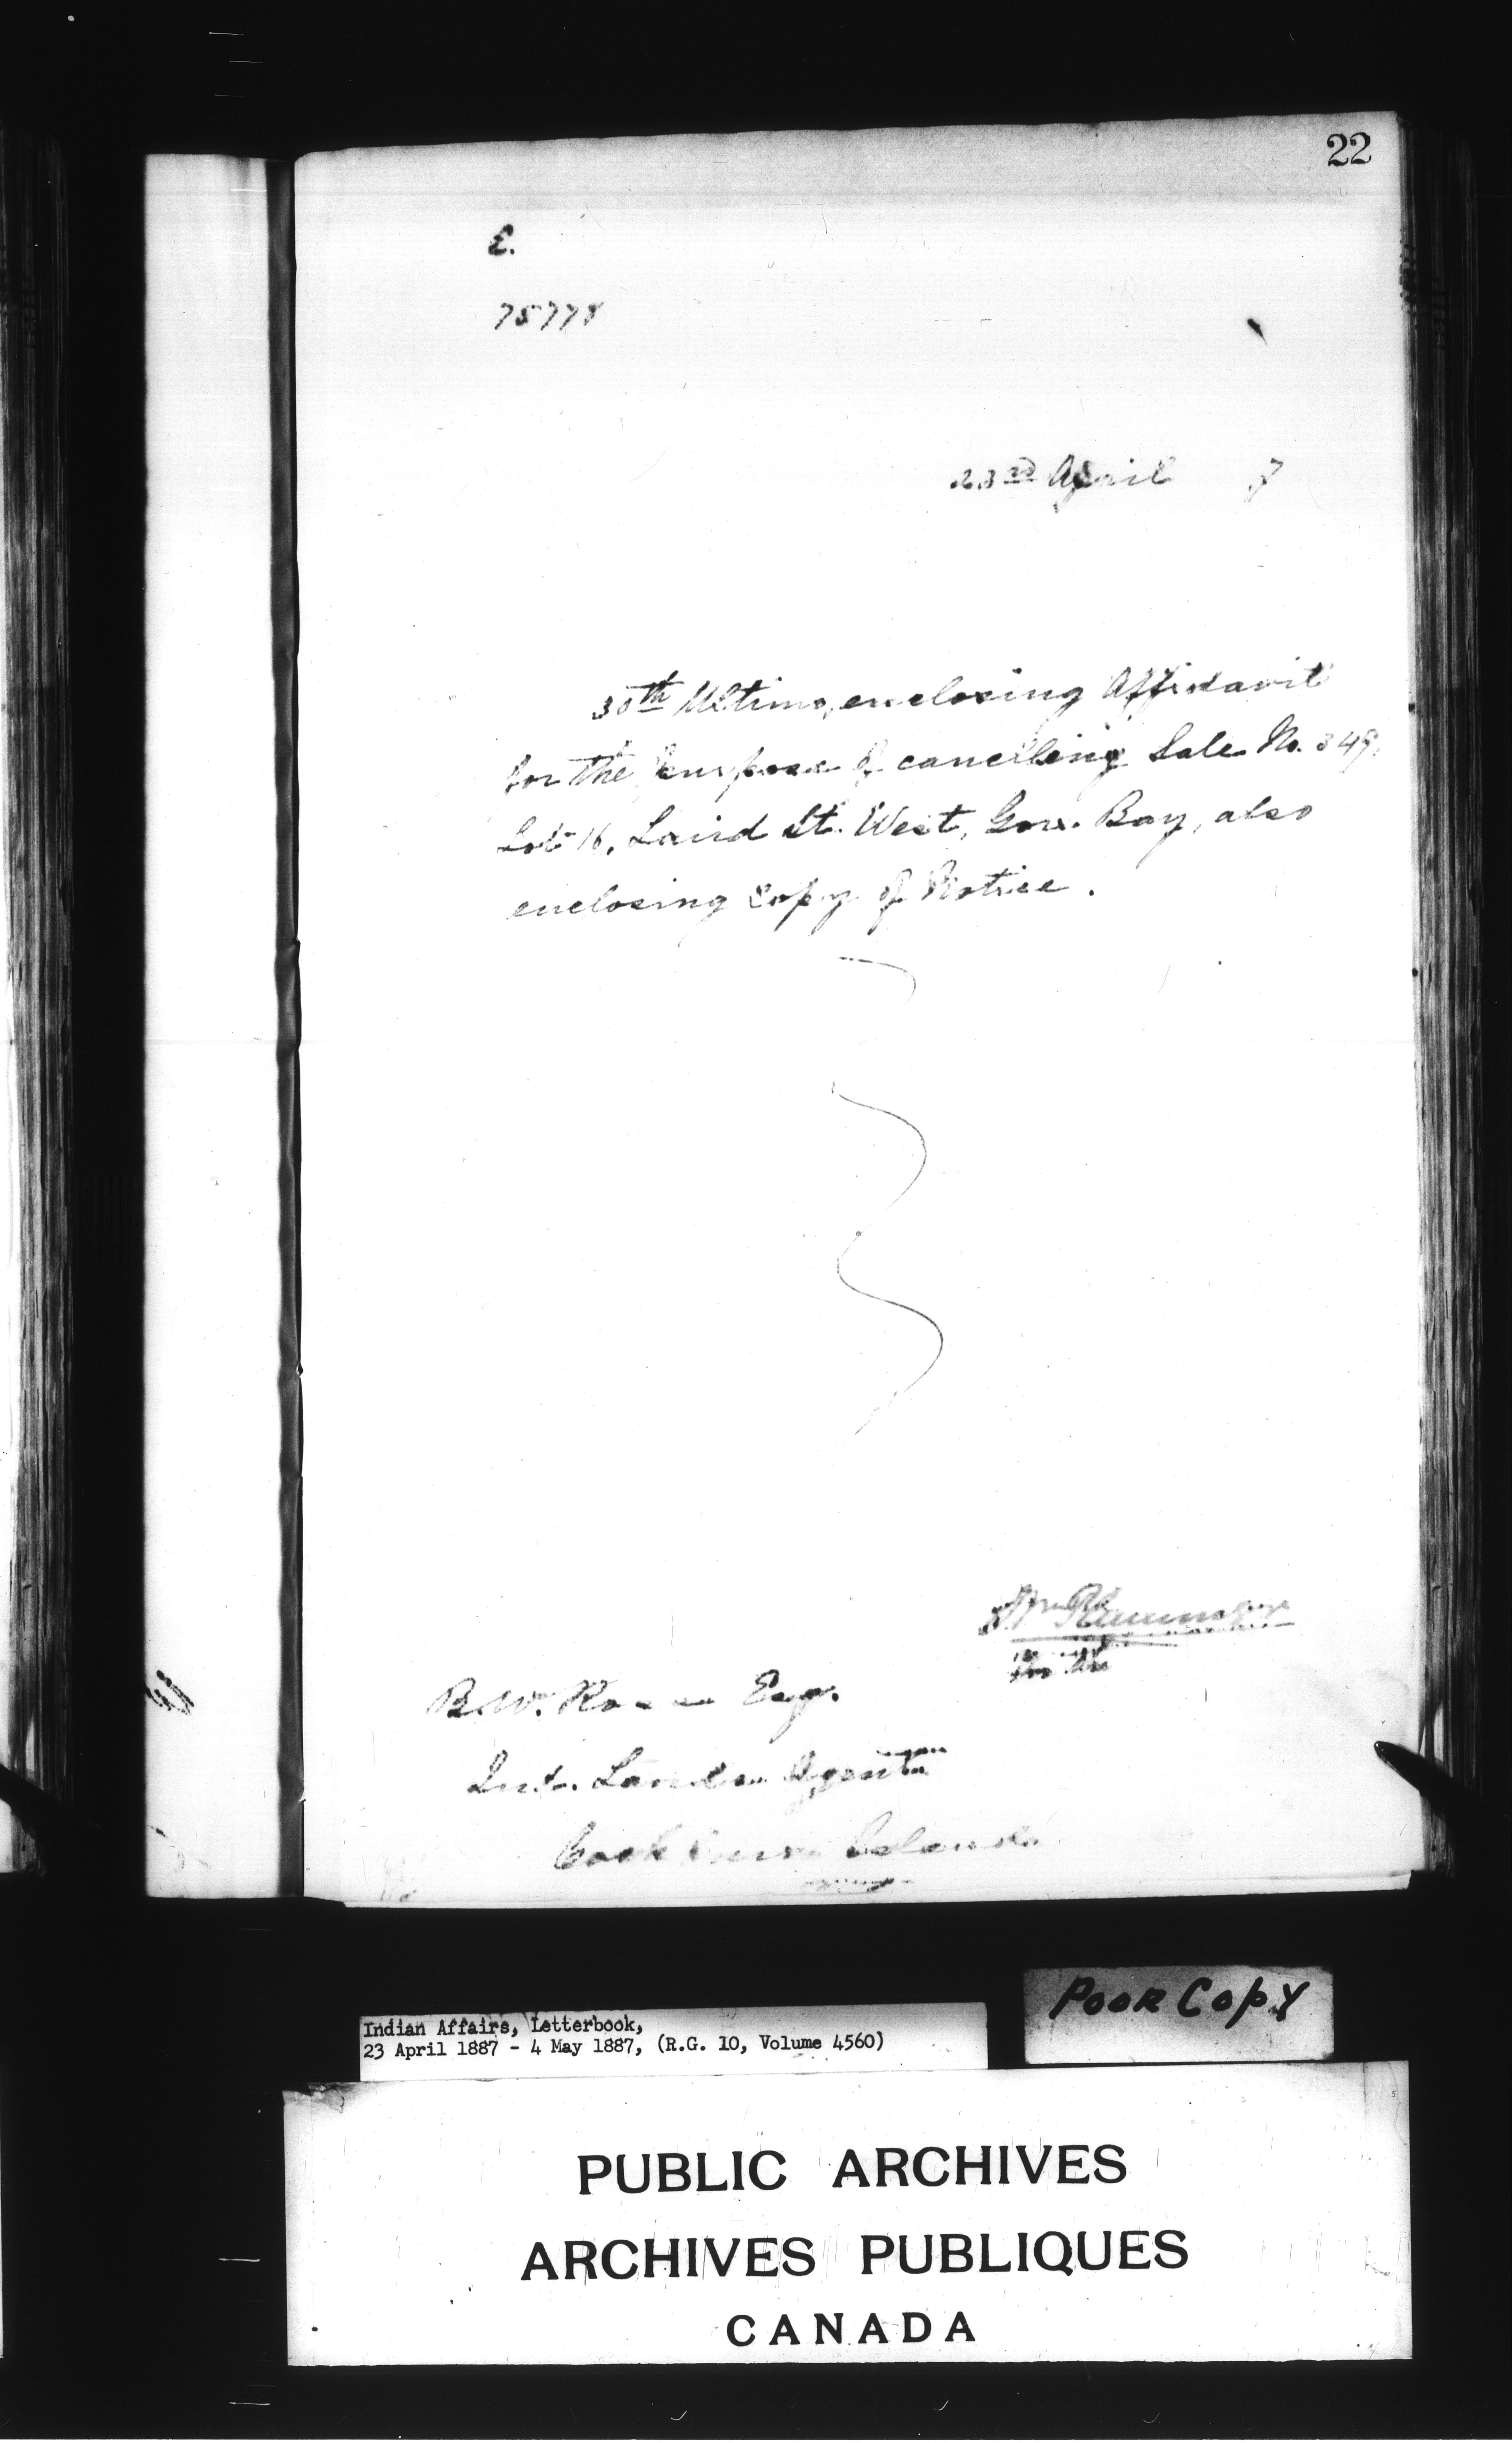 22
E.
75778
23rd April 7
30th Ultimo, enclosing Affidavit
for the purpose of cancelling Sale No. 349,
Lot 16, Laird St. West, Gore Bay, also
enclosing copy of Notice.
Wm Plummer
for the
B.W. Ross Esq.
Ind. Lands Agent
Cockburn Island
Poor Copy
Indian Affairs, Letterbook,
23 April 1887 - 4 May 1887, (R.G. 10, Volume 4560)
PUBLIC ARCHIVES
ARCHIVES PUBLIQUES
CANADA